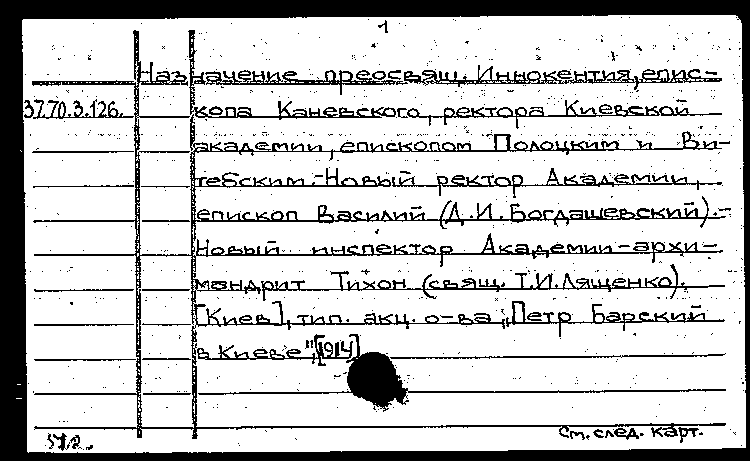 1
Назначение преосвящ. Иннокентия, епис-
37.70.3.126. копа Каневского, ректора Киевской
академии, епископом Полоцким и Ви-
тебским.-Новый ректор Академии,
епископ Василий (Д.И. Богдашевский).-
Новый инспектор Академии-архи-
мандрит Тихон (свящ. Т.И. Лященко).
[Киев], тип. акц. о-ва „Петр Барский
в Киеве", [1914]
См. след. карт.